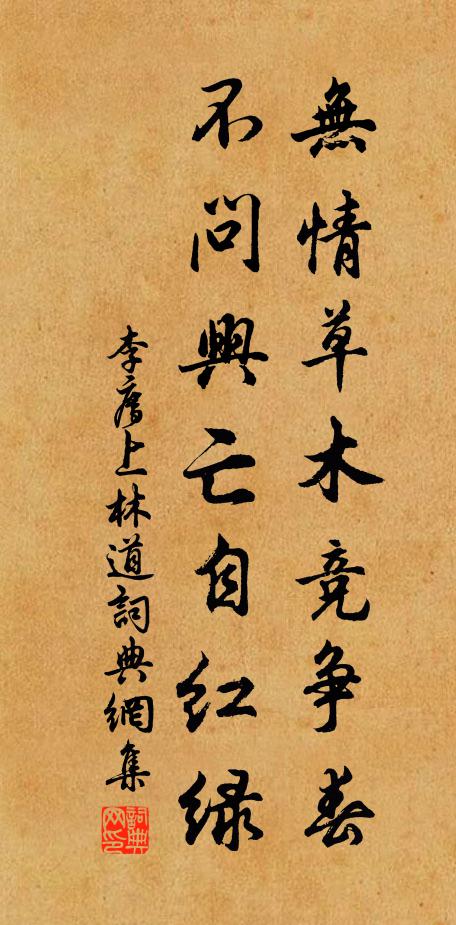 無情草木竞争春
不問興亡自红绿
李廌上林道詞典網集
詞典
网印